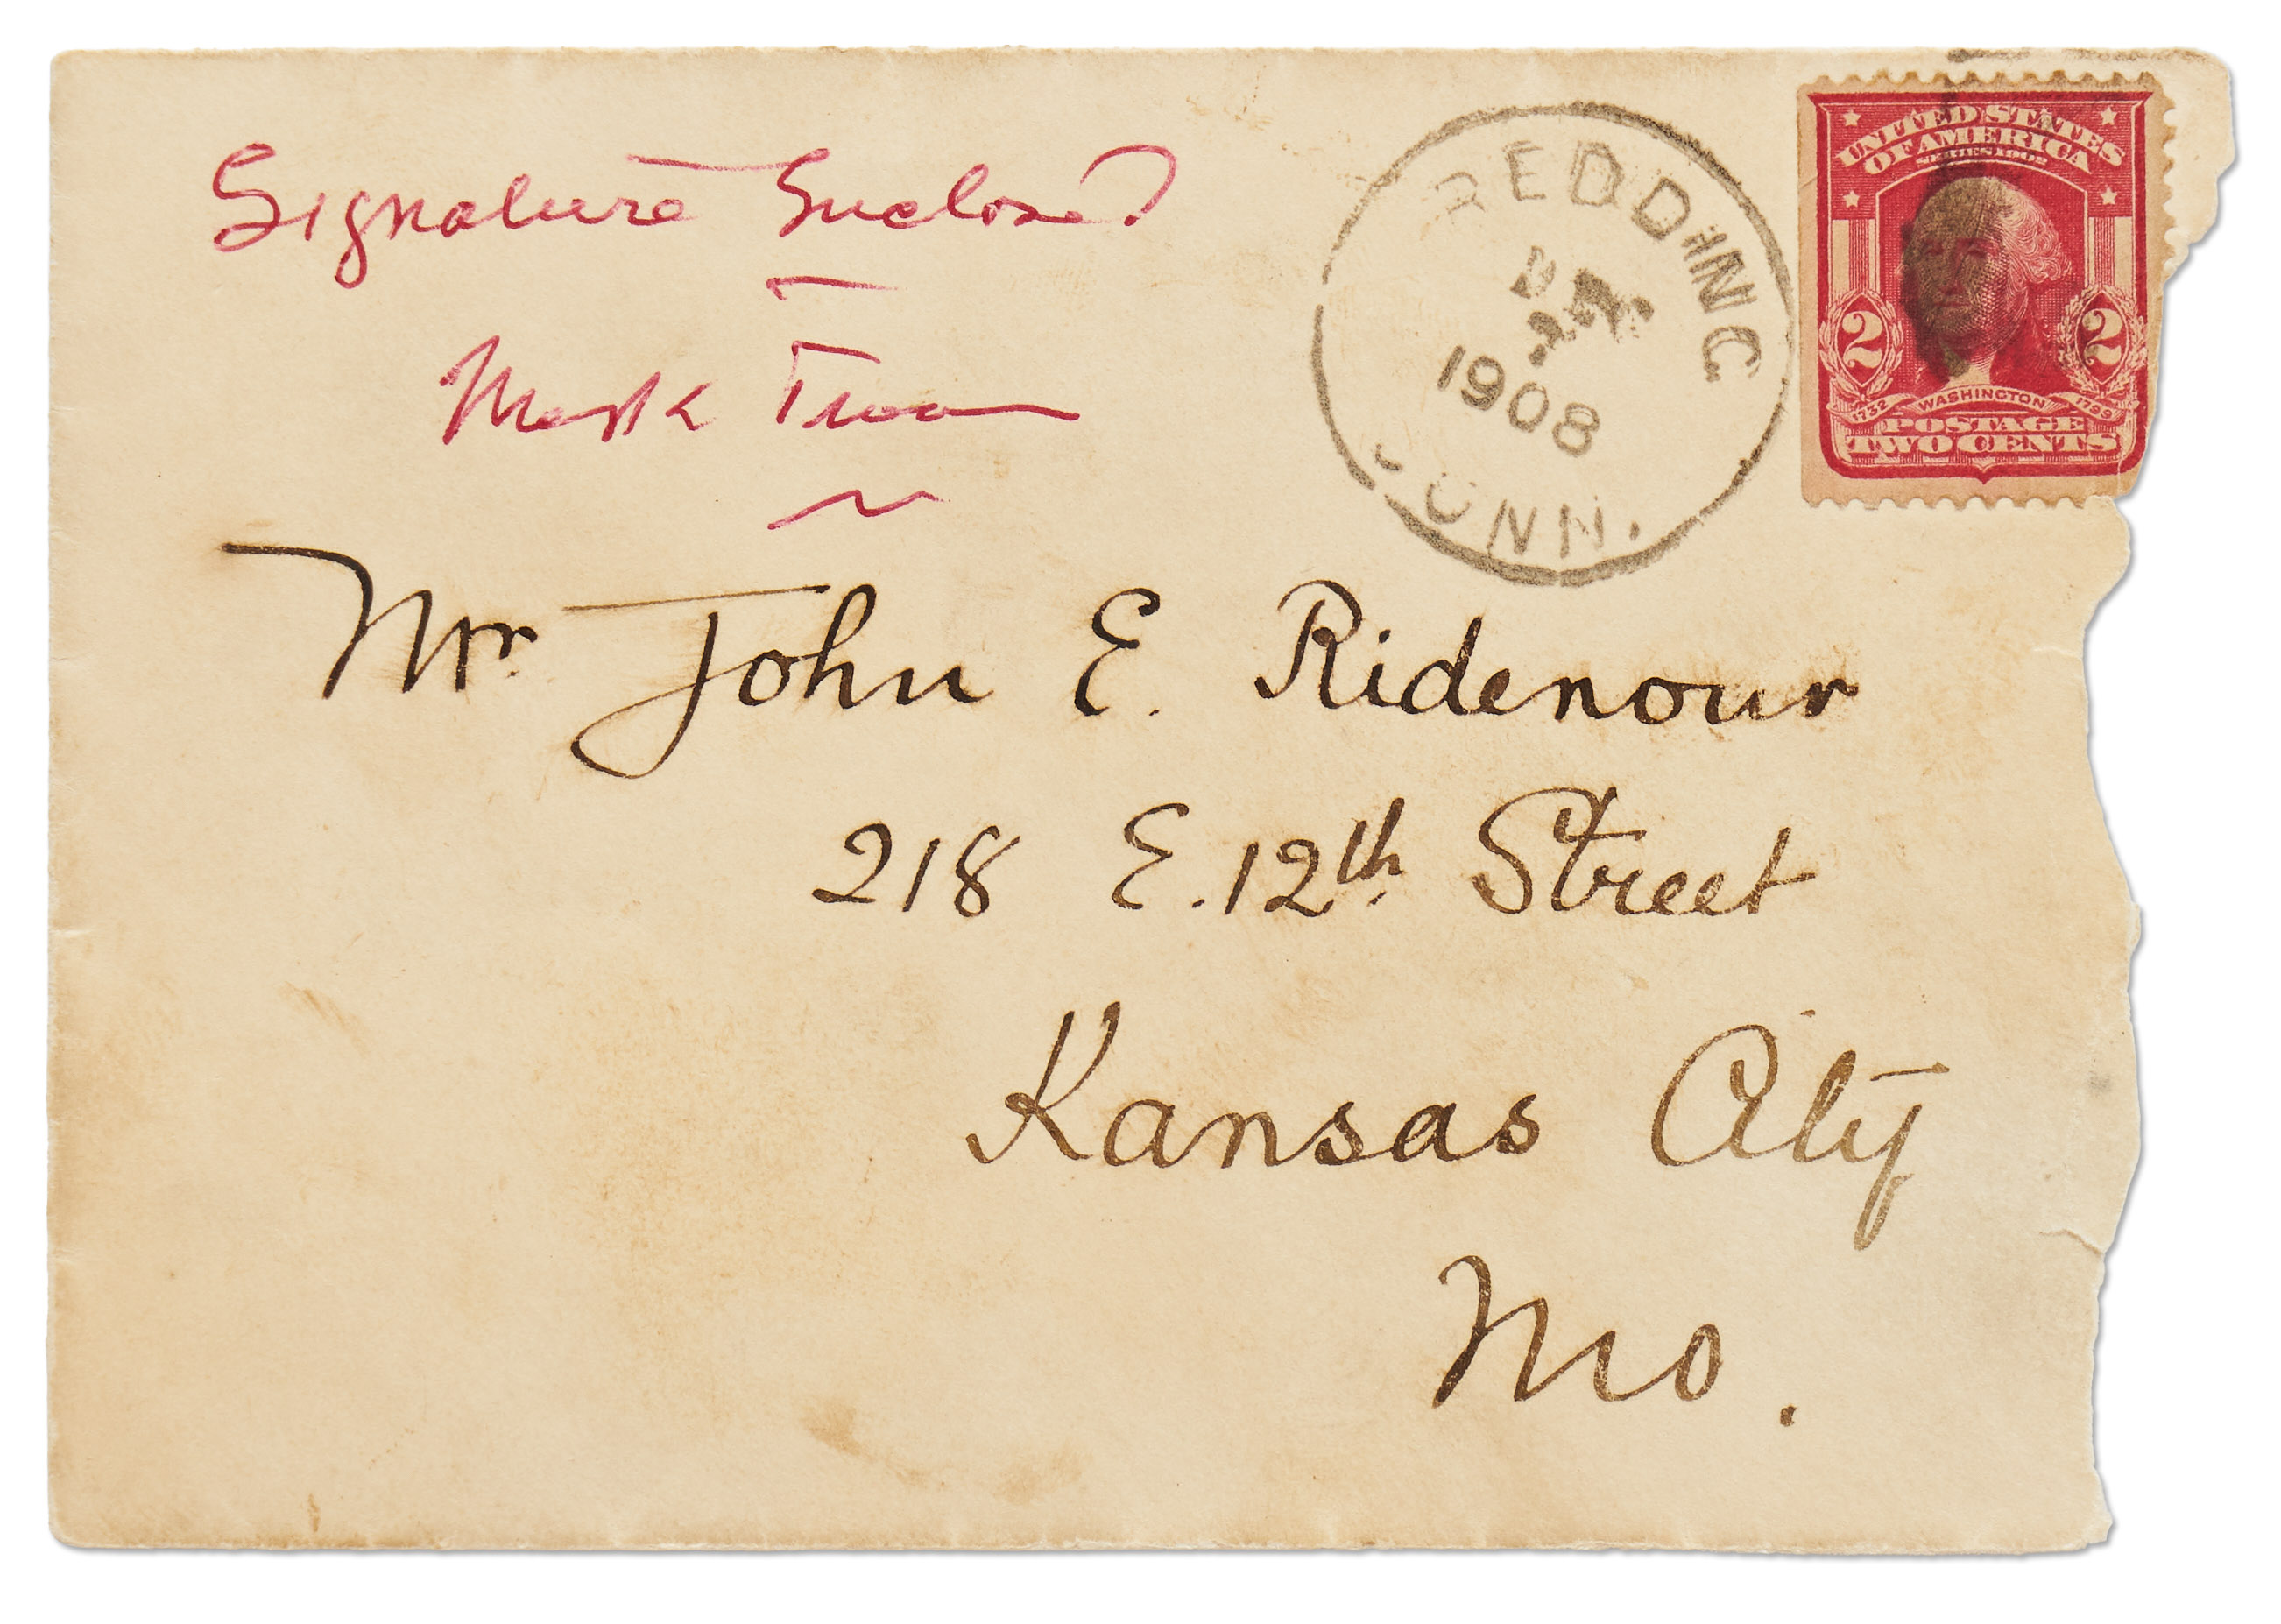 Signature Enclosed
Mark Twain
REDDING
1908
CONN.
UNITED STATES
OF AMERICA
SERIES 1902
2 2
1732 WASHINGTON 1799
POSTAGE
TWO CENTS
Mr. John E. Ridenour
218 E. 12th Street
Kansas City
Mo.